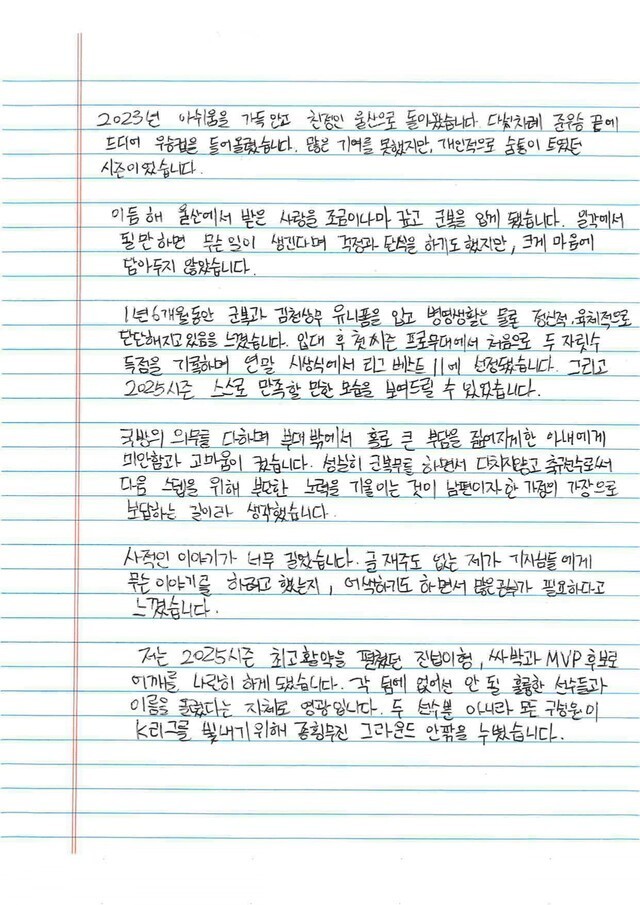 2023년 아쉬움을 가득 안고 친정인 울산으로 돌아왔습니다. 다섯차례 준우승 끝에
드디어 우승컵을 들어올렸습니다. 많은 기여를 못했지만, 개인적으로 숨통이 트였던
시즌이었습니다.
이듬해 울산에서 받은 사랑을 조금이나마 갚고 군복을 입게 됐습니다. 일각에서
될만하면 무슨 일이 생긴다며 걱정과 탄식을 하기도 했지만, 크게 마음에
담아두지 않았습니다.
1년 6개월동안 군복과 김천상무 유니폼을 입고 병영생활은 물론 정신적, 육체적으로
단단해지고 있음을 느꼈습니다. 입대 후 첫 시즌 프로무대에서 처음으로 두 자릿수
득점을 기록하며 연말 시상식에서 리그 베스트 11에 선정됐습니다. 그리고
2025시즌 스스로 만족할 만한 모습을 보여드릴 수 있었습니다.
국방의 의무를 다하며 부대 밖에서 홀로 큰 부담을 짊어지게한 아내에게
미안함과 고마움이 컸습니다. 성실히 군복무를 하면서 다치지않고 축구선수로써
다음 스텝을 위해 부단한 노력을 기울이는 것이 남편이자 한 가정의 가장으로
보답하는 길이라 생각했습니다.
사적인 이야기가 너무 길었습니다. 글재주도 없는 제가 기자님들에게
무슨 이야기를 하려고 했는지, 어색하기도 하면서 많은 공부가 필요하다고
느꼈습니다.
저는 2025시즌 최고활약을 펼쳤던 진섭이형, 싸박과 MVP 후보로
어깨를 나란히 하게 됐습니다. 각 팀에 없어선 안 될 훌륭한 선수들과
이름을 올렸다는 자체로 영광입니다. 두 선수뿐 아니라 모든 구성원이
K리그를 빛내기 위해 종횡무진 그라운드 안팎을 누볐습니다.